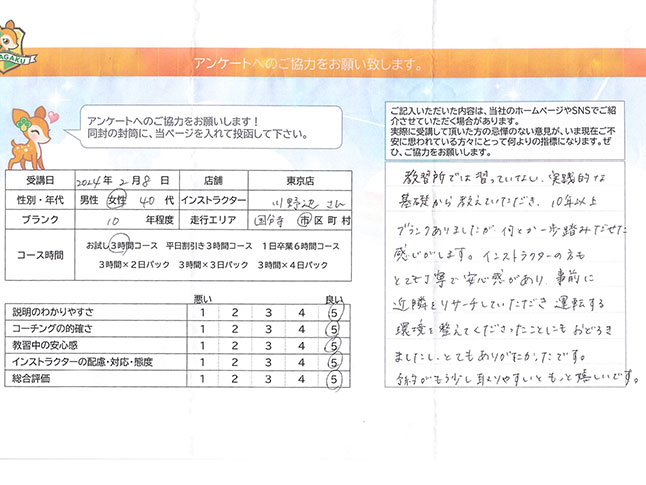 AGAKU
アンケートへのご協力をお願い致します。
アンケートへのご協力をお願いします！
同封の封筒に、当ページを入れて投函して下さい。
ご記入いただいた内容は、当社のホームページやSNSでご紹
介させていただく場合があります。
実際に受講して頂いた方の忌憚のない意見が、いま現在ご不
安に思われている方々にとって何よりの指標になります。ぜ
ひ、ご協力をお願いします。
受講日 2024年 2月8日 店舗 東京店
性別・年代 男性 女性 40代 インストラクター 川野辺さん
ブランク 10 年程度 走行エリア 国分寺 市区町村
コース時間 お試し3時間コース 平日割引き3時間コース 1日卒業6時間コース
3時間×2日パック 3時間×3日パック 3時間×4日パック
悪い 良い
説明のわかりやすさ 1 2 3 4 5
コーチングの的確さ 1 2 3 4 5
教習中の安心感 1 2 3 4 5
インストラクターの配慮・対応・態度 1 2 3 4 5
総合評価 1 2 3 4 5
教習所では習っていない、実践的な
基礎から教えていただき、10年以上
ブランクありましたが何とか一歩踏みだせた
感じがします。インストラクターの方も
とても丁寧で安心感があり、事前に
近隣をリサーチしていただき運転する
環境を整えてくださったことにもおどろき
ましたし、とてもありがたかったです。
予約がもう少し取りやすいともっと嬉しいです。